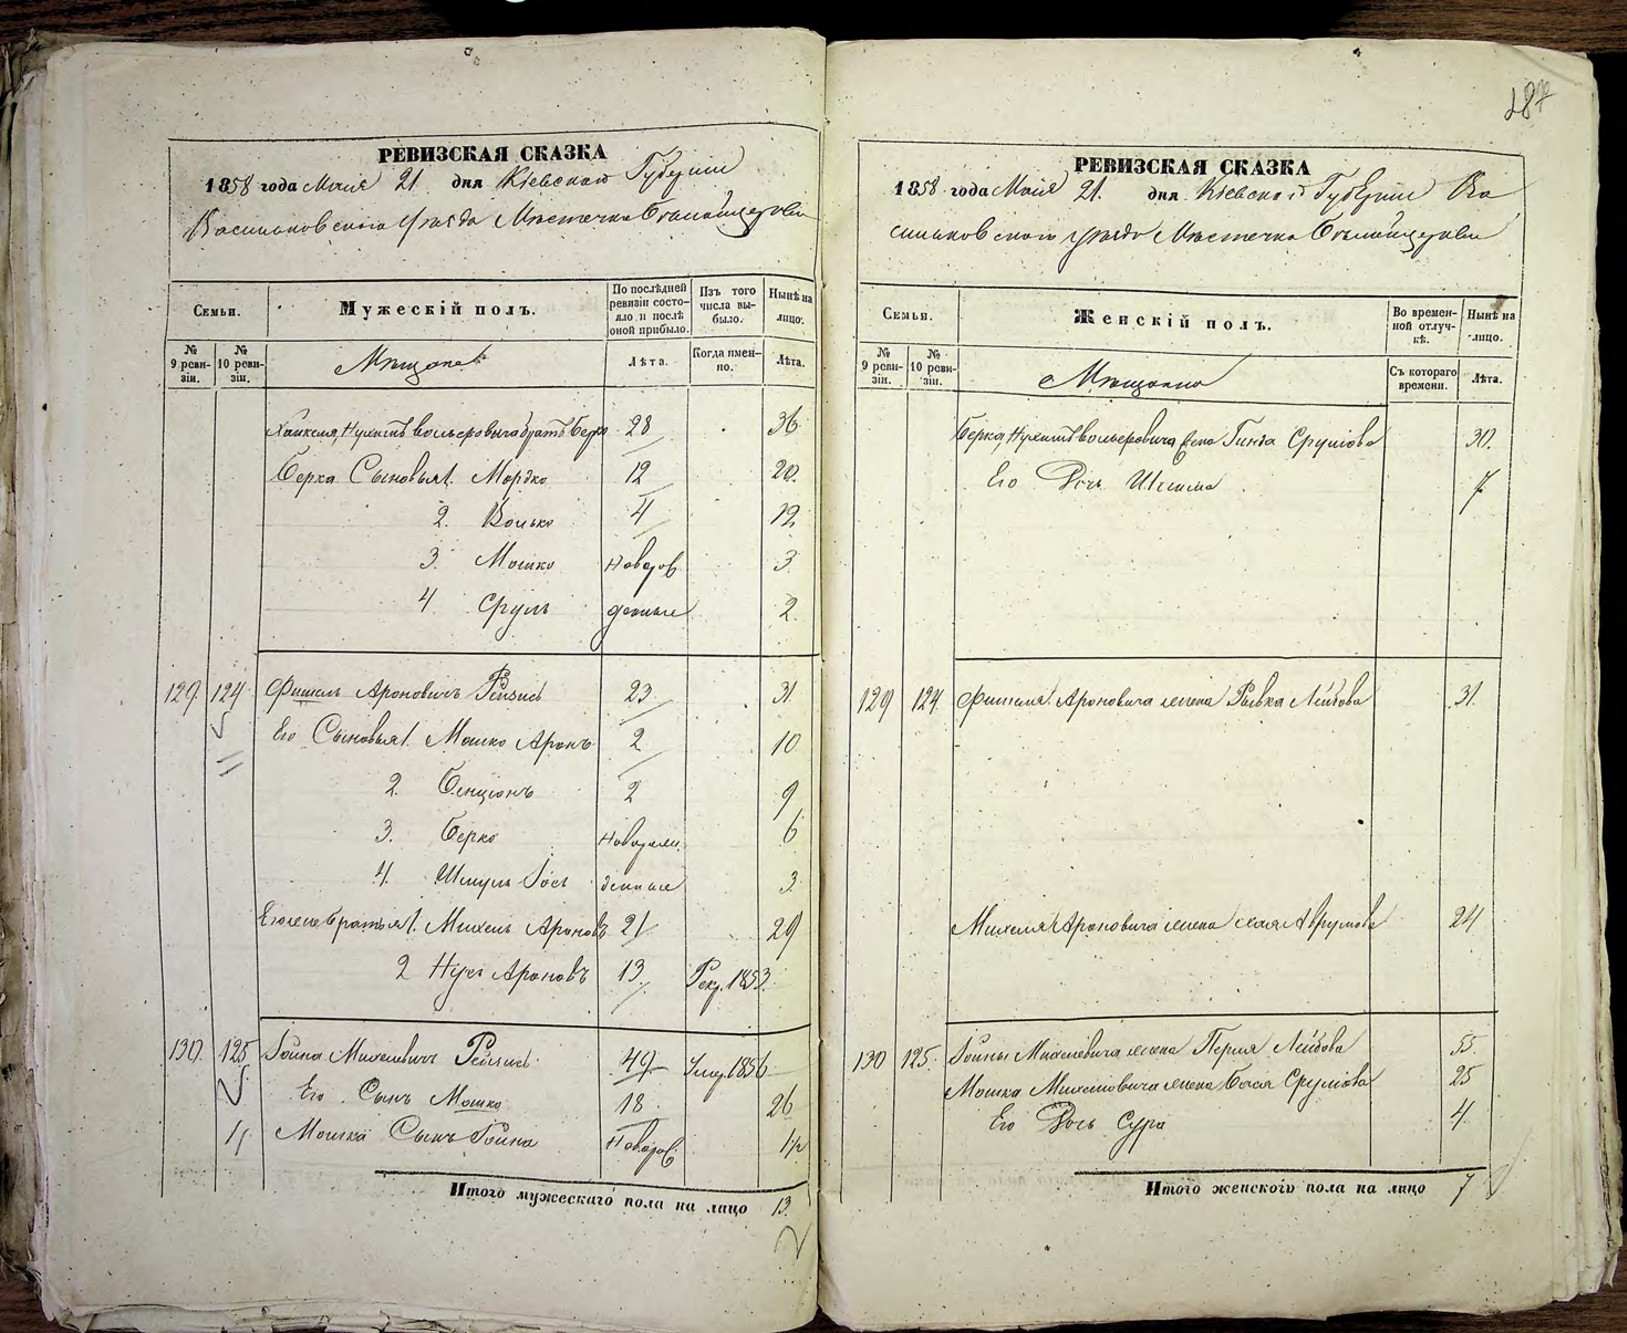 187
РЕВИЗСКАЯ СКАЗКА
1858 года Мая 21 дня Кіевской Губерніи
Васильковскаго Уѣзда Мѣстечка Бѣлойцеркви
Семьи.
Мужескій полъ.
По послѣдней ревизіи состояло и послѣ оной прибыло.
Изъ того числа выбыло.
Нынѣ на лицо.
№ 9 ревизіи.
№ 10 ревизіи.
Мѣщане
Лѣта.
Когда именно.
Лѣта.
Вольфовича братъ Берко 28 36
Берка Сыновья 1. Мордко 12 20.
2. Волько 4 12
3. Мошко новорож 3
4 Сруль денные 2
129 124 Фишель Ароновичъ 23 31
Его Сыновья 1. Мошко Аронъ 2 10
2. Бенціонъ 2 9
3. Берко Новорож 6
4. Шмуль Іось денные 3
Егоже братья 1. Михель Ароновъ 21 29
2 Ароновъ 13. Рекр. 1853
130. 125 Михелевичъ 49 Умер. 1856
Его Сынъ Мошко 18 26
Мошка Сынъ новорож 1/2
Итого мужескаго пола на лицо 13.
РЕВИЗСКАЯ СКАЗКА
1858 года Мая 21. дня Кіевской Губерніи Ва
сильковскаго уѣзда Мѣстечка Бѣлойцеркви
Семьи.
Женскій полъ.
Во временной отлучкѣ.
Нынѣ на лицо.
№ 9 ревизіи.
№ 10 ревизіи.
Мѣщанки
Съ котораго времени.
Лѣта.
Берка Вольфовича жена Срулiова 30.
Его Дочь 7
129 124 Фишеля Ароновича жена Рывка Лейбова 31.
Михеля Ароновича жена Хая Аврумова 24
130 125. Михелевича жена Перля Лейбова 55.
Мошка жена Бася Срулiова 25
Его Дочь Сура 4
Итого женскаго пола на лицо 7